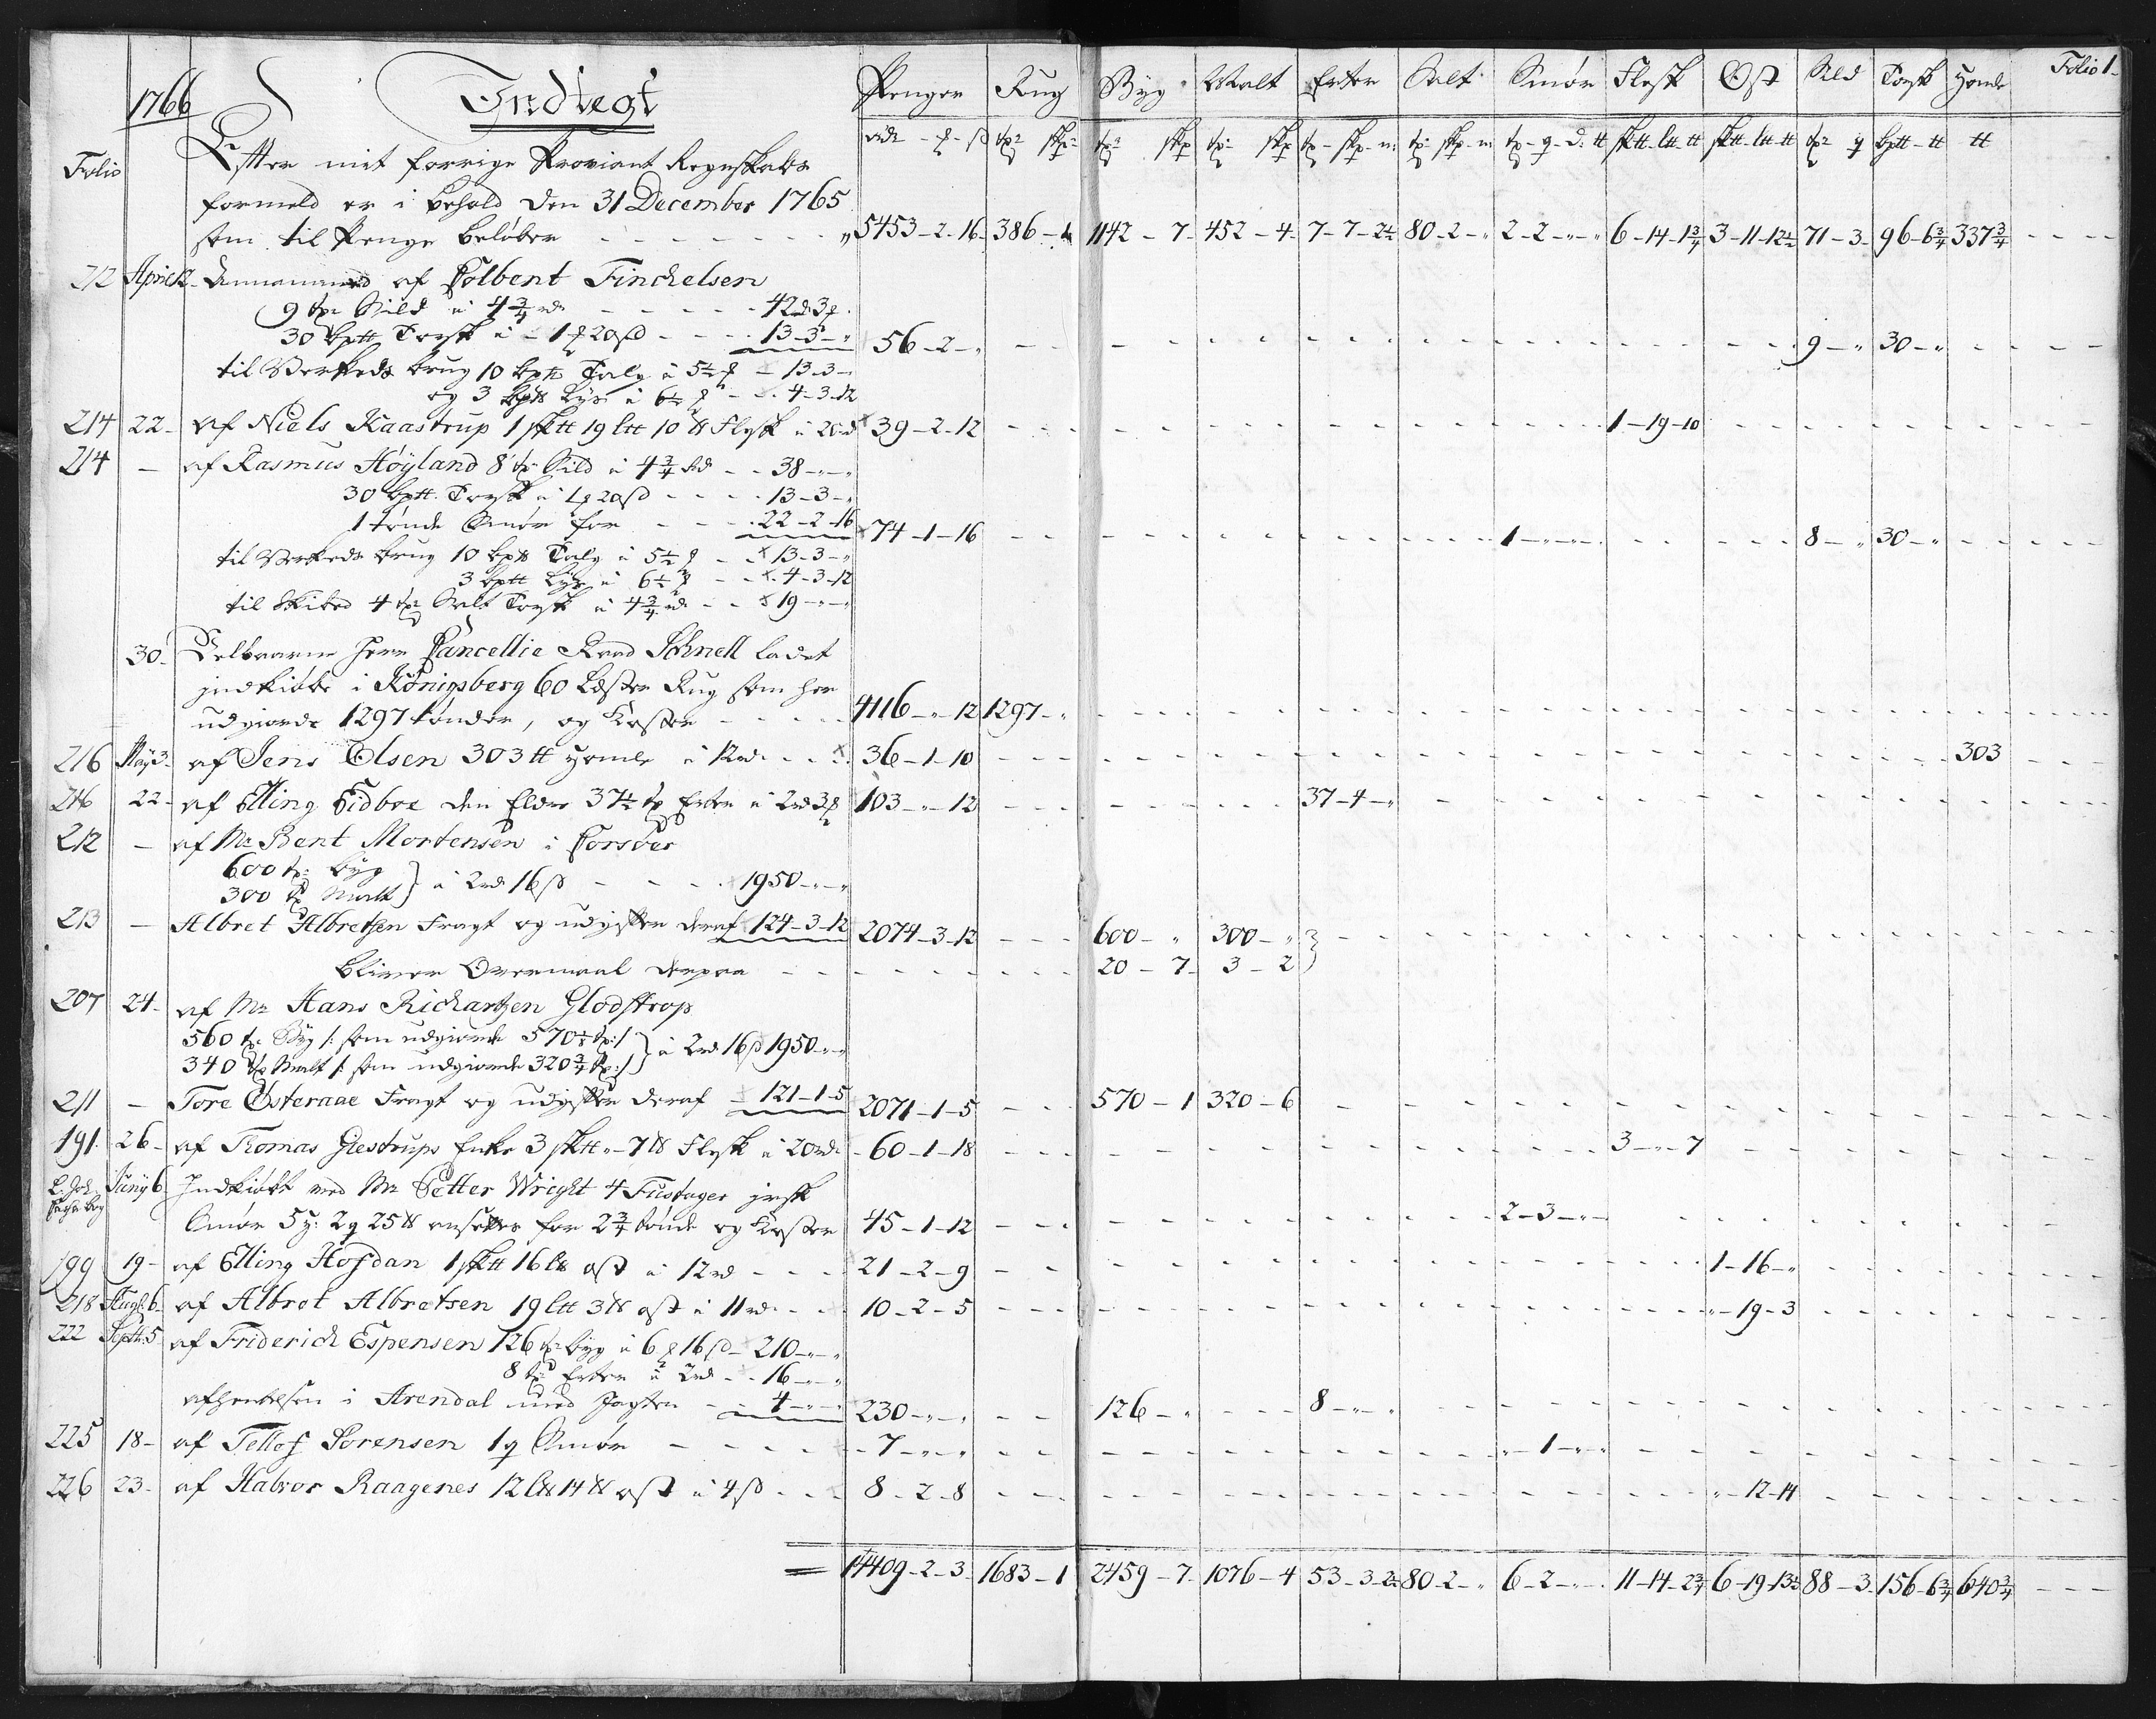 1766 Indtegt Penger Rug Byg Malt Erter Salt Smør Flesk Ost Sild Torsk Homle Folio 1
Folio Efter mit forrige Proviant Regnskabs
formeld er i behold den 31 December 1765
som til Penge beløber - - - 5453-2-16 386-1 1142-7 452-4 7-7-2½ 80-2-" 2-2-"-" 6-14-1¾ 3-11-12½ 71-3 96-6¾ 337¾
212 April 12 Annammed af Colbent Finchelsen
9 tr Sild à 4¾ rd - - - 42 rd 3
30 bptt Torsk à 1 20 s - - - 13-3-" 56-2-" 9-" 30-"
til Verkeds brug 10 bptt Talg à 5½ - 13-3-"
og 3 bptt Lys à 6½ - 4-3-12
214 22 af Niels Kaastrup 1 sktt 19 ltt 10 tt Flesk à 20 rd 39-2-12 1-19-10
214 - af Rasmus Høyland 8 tr Sild à 4¾ rd - - 38-"-"
30 bptt Torsk à 1 20 s - - - 13-3-"
1 tønde Smør for - - - 22-2-16 74-1-16 1-"-"-" 8-" 30-"
til Verkeds brug 10 bptt Talg à 5½ - 13-3-"
3 bptt Lys à 6½ - - 4-3-12
til Skibed 4 tr Salt Torsk à 4¾ rd - - 19-"-"
30 Velbaarne Herr Cancellie Raad Schnell ladet
indkiøbe i Königsberg 60 Lester Rug som her
udgiorde 1297 tønder, og Koster - - - 4116-"-12 1297-"
216 May 3 af Jens Olsen 303 tt Homle à 12 rd - - 36-1-10 303
216 22 af Elling Eidboe den Eldre 37½ tr Erter à 2 rd 3 103-"-12 37-4-"
212 - af Mr Bent Mortensen i Corsöer
600 tr Byg
300 tr Malt } à 2 rd 16 s - - - 1950-"-"
213 - Albret Albretsen Fragt og udgifter deraf 124-3-12 2074-3-12 600-" 300-"
bliver Overmaal derpaa - - - 20-7 3-2
207 24 af Mr Hans Richartzen Glodstrop
560 tr Byg /: som udgiorde 570⅛ tr :/
340 tr Malt /: som udgiorde 320¾ tr :/ } à 2 rd 16 s 1950-"-"
211 - Tore Østeraae Fragt og udgifter deraf - 121-1-5 2071-1-5 570-1 320-6
191 26 af Tomas Giestrups Enke 3 sktt "-7 tt Flesk à 20 rd 60-1-18 3-"-7
Juny 6 Indkiøbt ved Mr Petter Wright 4 Fustager irsk
Smør 5 : 2 q 25 tt ansettes for 2¾ tønde og Koster 45-1-12 2-3-"-"
199 19 af Elling Hofdan 1 sktt 16 ltt ost à 12 rd - - - 21-2-9 1-16-"
218 Augt 6 af Albret Albretsen 19 ltt 3 tt ost à 11 rd - - 10-2-5 "-19-3
222 Septbr 5 af Friderich Espensen 126 tr byg à 6 16 s - 210-"-"
8 tr Erter à 2 rd - - 16-"-"
afhentelsen i Arendal med Jagten - - 4-"-" 230-"-" 126-" 8-"-"
225 18 af Tellof Sorensen 1 q Smør - - - 7-"-" "-1-"-"
226 23 af Halvor Raagenes 12 ltt 14 tt ost à 4 s - - - 8-2-8 "-12-14
14409-2-3 1683-1 2459-7 1076-4 53-3-2½ 80-2-" 6-2-"-" 11-14-2¾ 6-19-13½ 88-3 156-6¾ 640¾